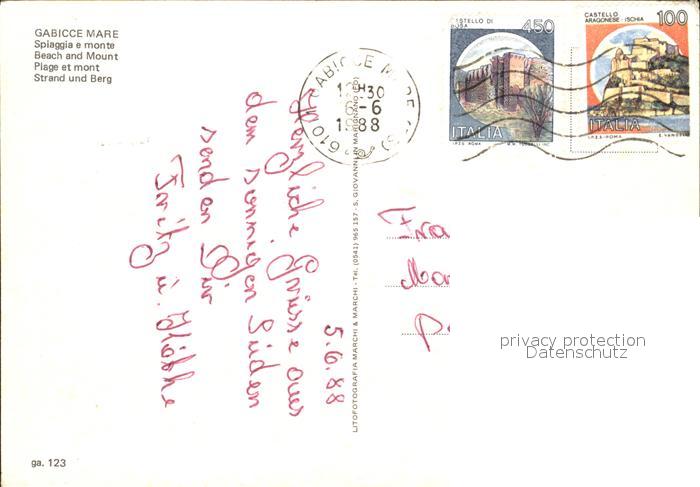 GABICCE MARE
Spiaggia e monte
Beach and Mount
Plage et mont
Strand und Berg
CASTELLO DI
BOSA
450
ITALIA
I.P.Z.S. ROMA
CASTELLO
ARAGONESE - ISCHIA
100
ITALIA
I.P.Z.S. - ROMA
GABICCE MARE
12H30
6-6
1988
610
5.6.88
Herzliche Grüsse aus
dem sonnigen Süden
senden Dir
Fritz u.
LITOFOTOGRAFIA MARCHI & MARCHI - Tel. (0541) 965 157 - S. GIOVANNI IN MARIGNANO (FO)
Fra
privacy protection
Datenschutz
ga. 123